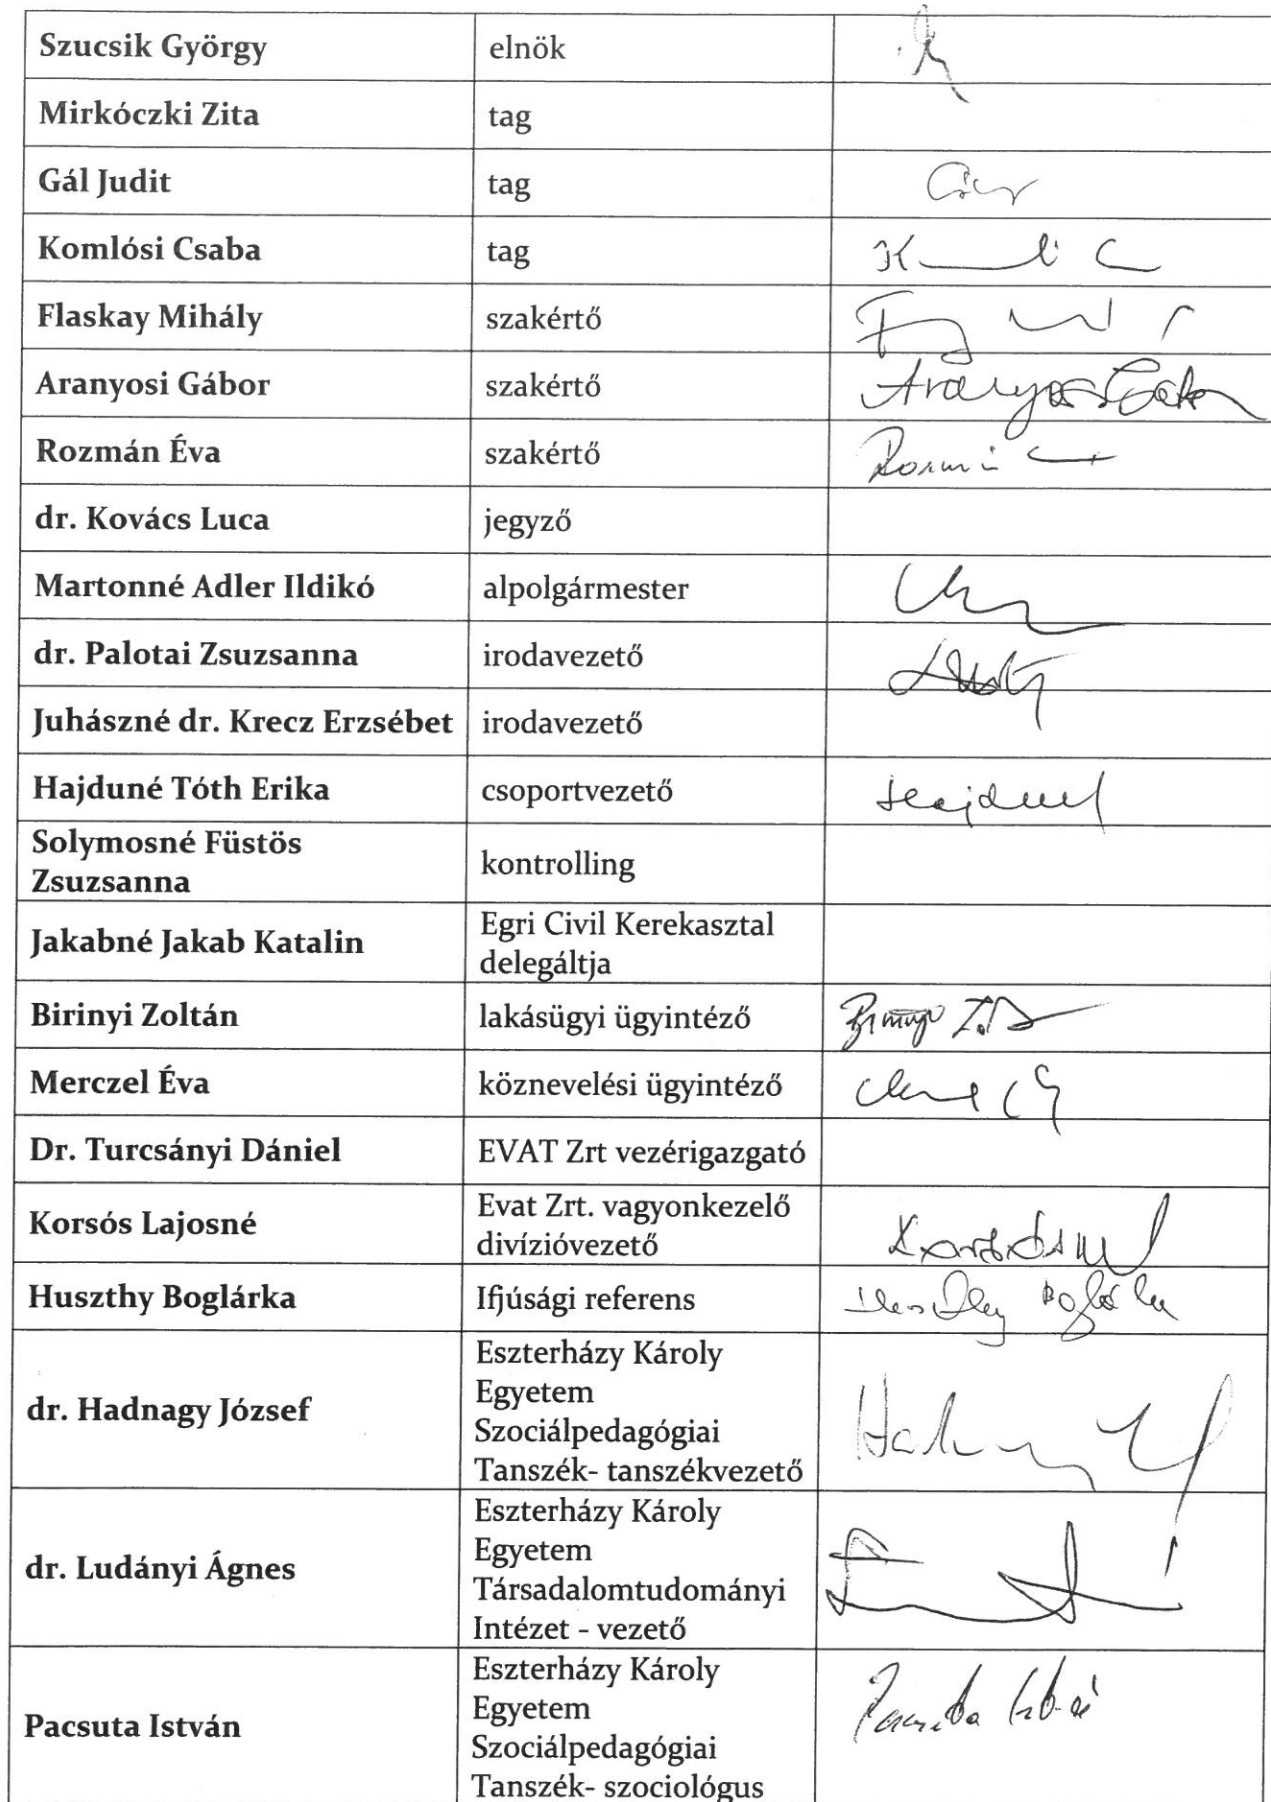 Szucsik György elnök
Mirkóczki Zita tag
Gál Judit tag
Komlósi Csaba tag
Flaskay Mihály szakértő
Aranyosi Gábor szakértő
Rozmán Éva szakértő
dr. Kovács Luca jegyző
Martonné Adler Ildikó alpolgármester
dr. Palotai Zsuzsanna irodavezető
Juhászné dr. Krecz Erzsébet irodavezető
Hajduné Tóth Erika csoportvezető
Solymosné Füstös
Zsuzsanna
kontrolling
Jakabné Jakab Katalin
Egri Civil Kerekasztal
delegáltja
Birinyi Zoltán lakásügyi ügyintéző
Merczel Éva köznevelési ügyintéző
Dr. Turcsányi Dániel EVAT Zrt vezérigazgató
Korsós Lajosné
Evat Zrt. vagyonkezelő
divízióvezető
Huszthy Boglárka Ifjúsági referens
dr. Hadnagy József
Eszterházy Károly
Egyetem
Szociálpedagógiai
Tanszék- tanszékvezető
dr. Ludányi Ágnes
Eszterházy Károly
Egyetem
Társadalomtudományi
Intézet - vezető
Pacsuta István
Eszterházy Károly
Egyetem
Szociálpedagógiai
Tanszék- szociológus